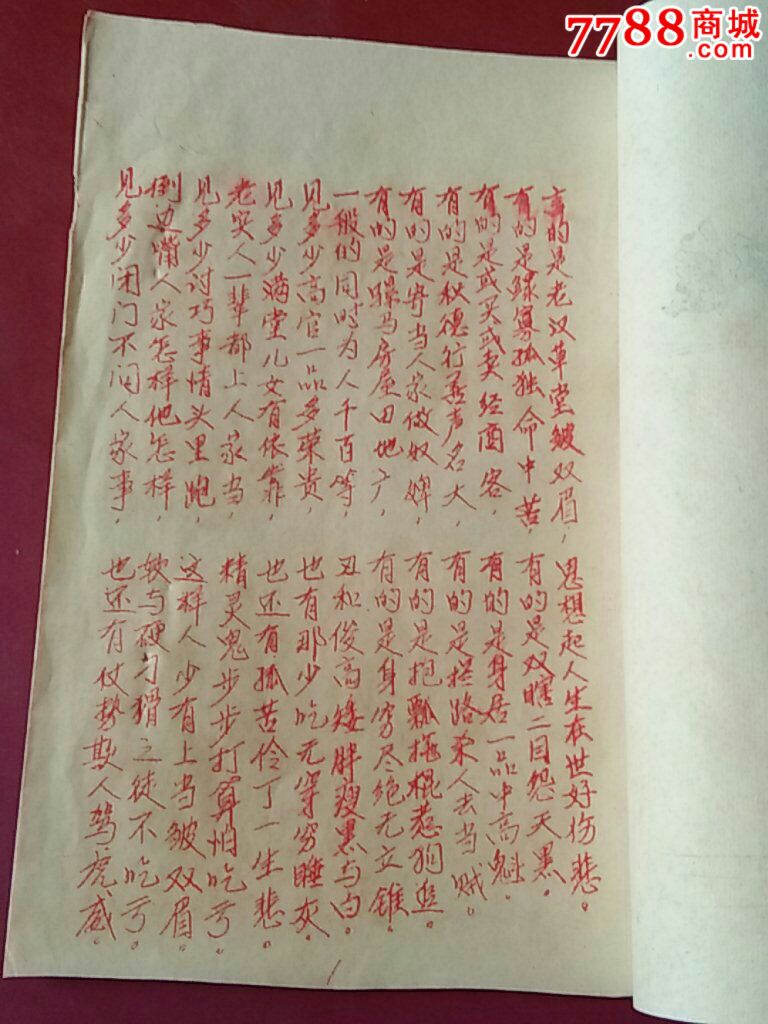 7788商城
.com
言的是老汉草堂皱双眉，思想起人生在世好伤悲。
有的是鳏寡孤独命中苦，有的是双瞎二目怨天黑。
有的是或买或卖经商客，有的是身居一品中高魁。
有的是积德行善声名大，有的是拦路杀人去当贼。
有的是寄当人家做奴婢，有的是抱瓢拖棍惹狗追。
有的是骡马房屋田地广，有的是身穷尽绝无立锥。
一般的同时为人千百等，丑和俊高矮胖瘦黑与白。
见多少高官一品多荣贵，也有那少吃无穿穷睡灰。
见多少满堂儿女有依靠，也还有孤苦伶丁一生悲。
老实人一辈都上人家当，精灵鬼步步打算怕吃亏。
见多少讨巧事情头里跑，这样人少有上当皱双眉。
倒边嘴人家怎样他怎样，软与硬刁猾之徒不吃亏。
见多少闭门不问人家事，也还有仗势欺人驾虎威。
1